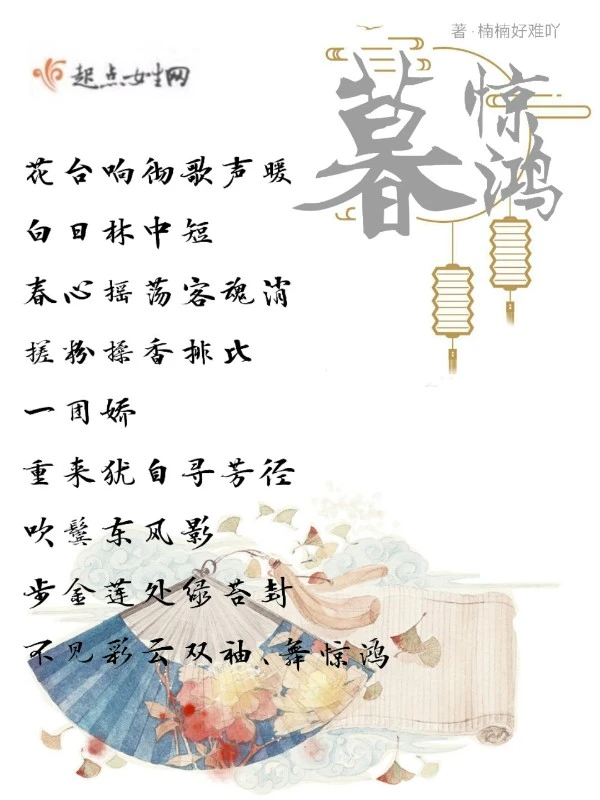 著·楠楠好难吖
起点女生网
暮惊鸿
花台响彻歌声暖
白日林中短
春心摇荡客魂消
搓粉揉香排比
一团娇
重来犹自寻芳径
吹鬓东风影
步金莲处绿苔封
不见彩云双袖、舞惊鸿